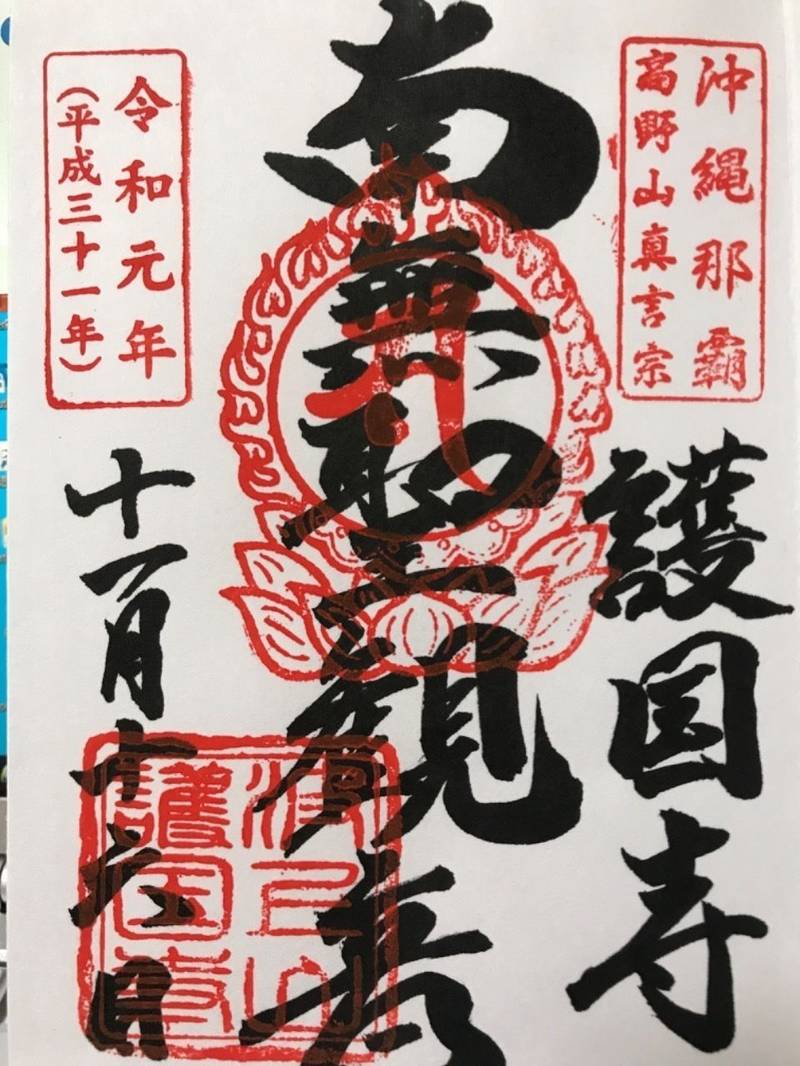 沖縄那覇
高野山真言宗
護国寺
南無聖観音
令和元年
(平成三十一年)
十一月十六日
波上山
護国寺